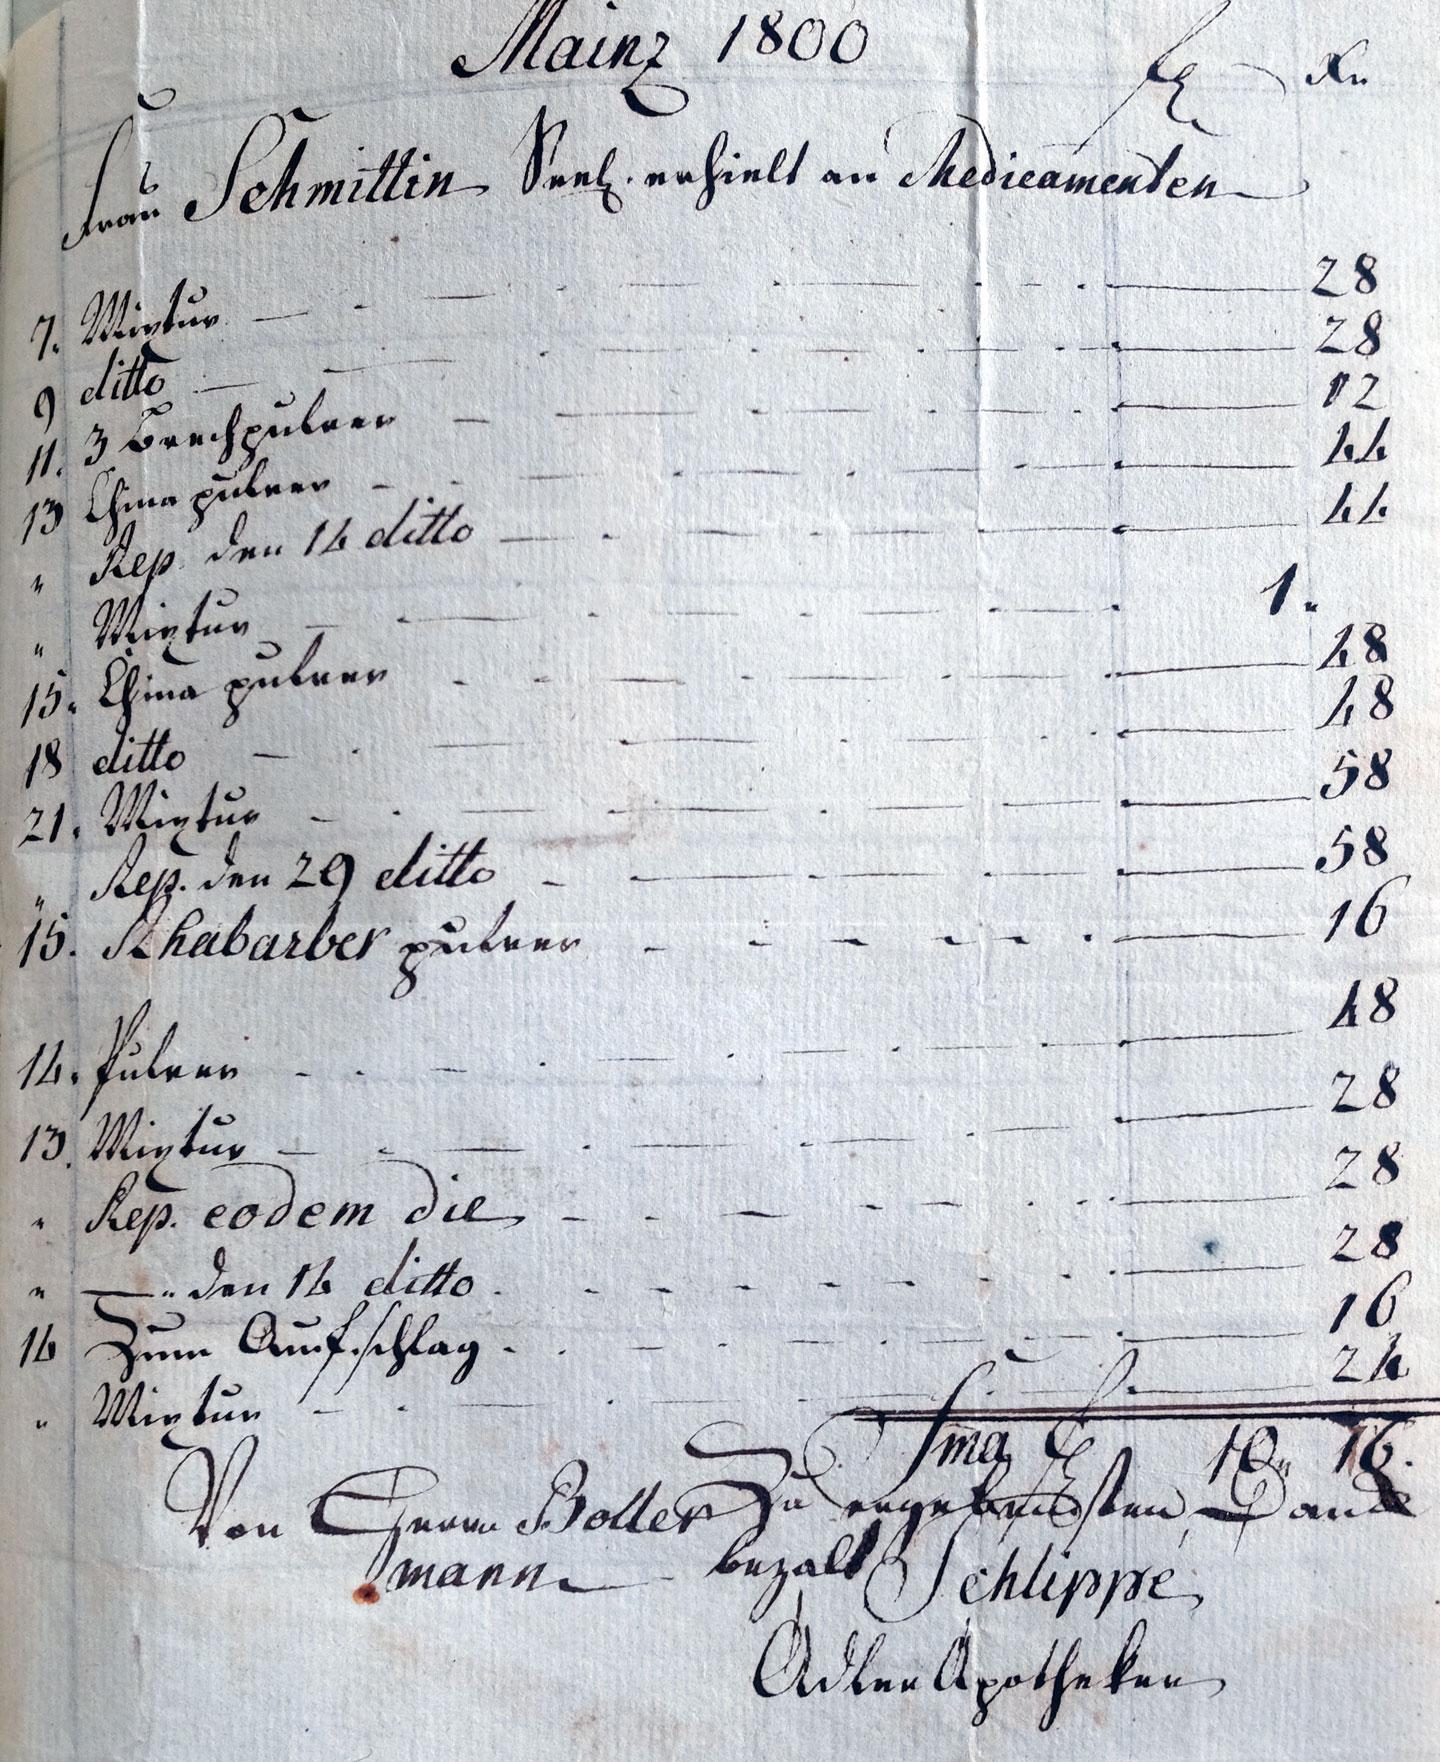 Mainz 1800 fl Xr
Frau Schmittin Seel. erhielt an Medicamenten
7. Mixtur 28
9 ditto 28
11. 3 Brechpulver 12
13 China pulver 44
" Rep. den 14 ditto 44
" Mixtur 1 "
15. China pulver 48
18 ditto 48
21. Mixtur 58
" Rep. den 29 ditto 58
15. Rhabarber pulver 16
14. Pulver 48
13. Mixtur 28
" Rep. eodem die 28
" —" den 14 ditto 28
14 Zum Aufschlag 16
" Mixtur 24
Sma fl 10 " 16.
Von Herrn Bolter
mann
Zu ergebensten Dank
bezalt Schlippe
Adler Apotheker